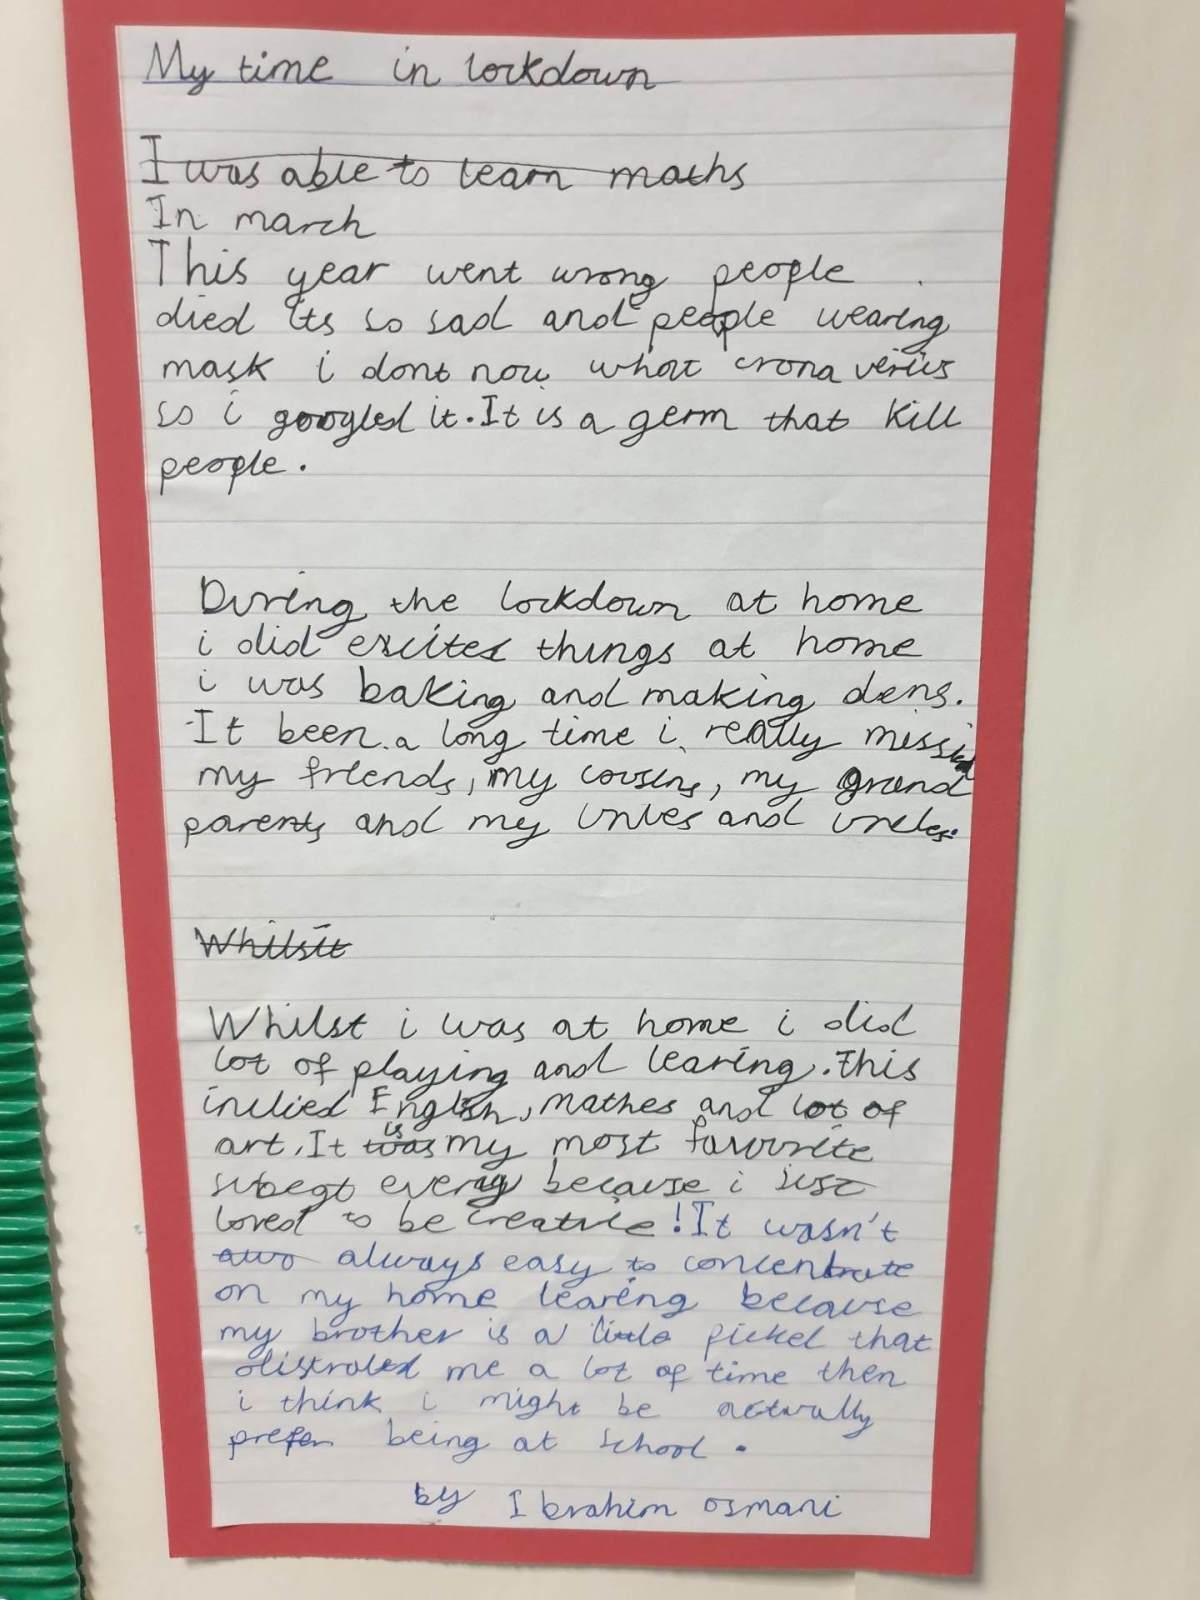 My time in lockdown
I was able to learn maths
In march
This year went wrong people
died its so sad and people wearing
mask i dont now what crona veriis
so i googled it. It is a germ that kill
people.
During the lockdown at home
i did exsited things at home
i was baking and making dens.
It been a long time i really missed
my friends, my cousins, my grand
parents and my and uncles.
Whilsit
Whilst i was at home i did
lot of playing and learing. This
inclied English, mathes and lot of
art. It was is my most favourite
subegt because i just
loved to be creative! It wasn't
awo always easy to concentrate
on my home learing because
my brother is a little pickel that
me a lot of time then
i think i might be actually
prefer being at school.
by Ibrahim osmani